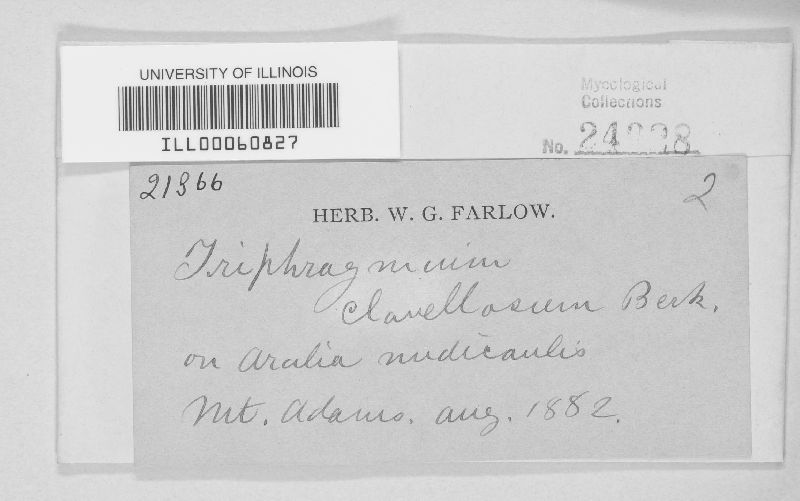 UNIVERSITY OF ILLINOIS
ILL00060827
Mycological
Collections
No.
21966
2
HERB. W. G. FARLOW.
Triphragmium
clavellosum Berk.
on Aralia nudicaulis
Mt. Adams. Aug. 1882.